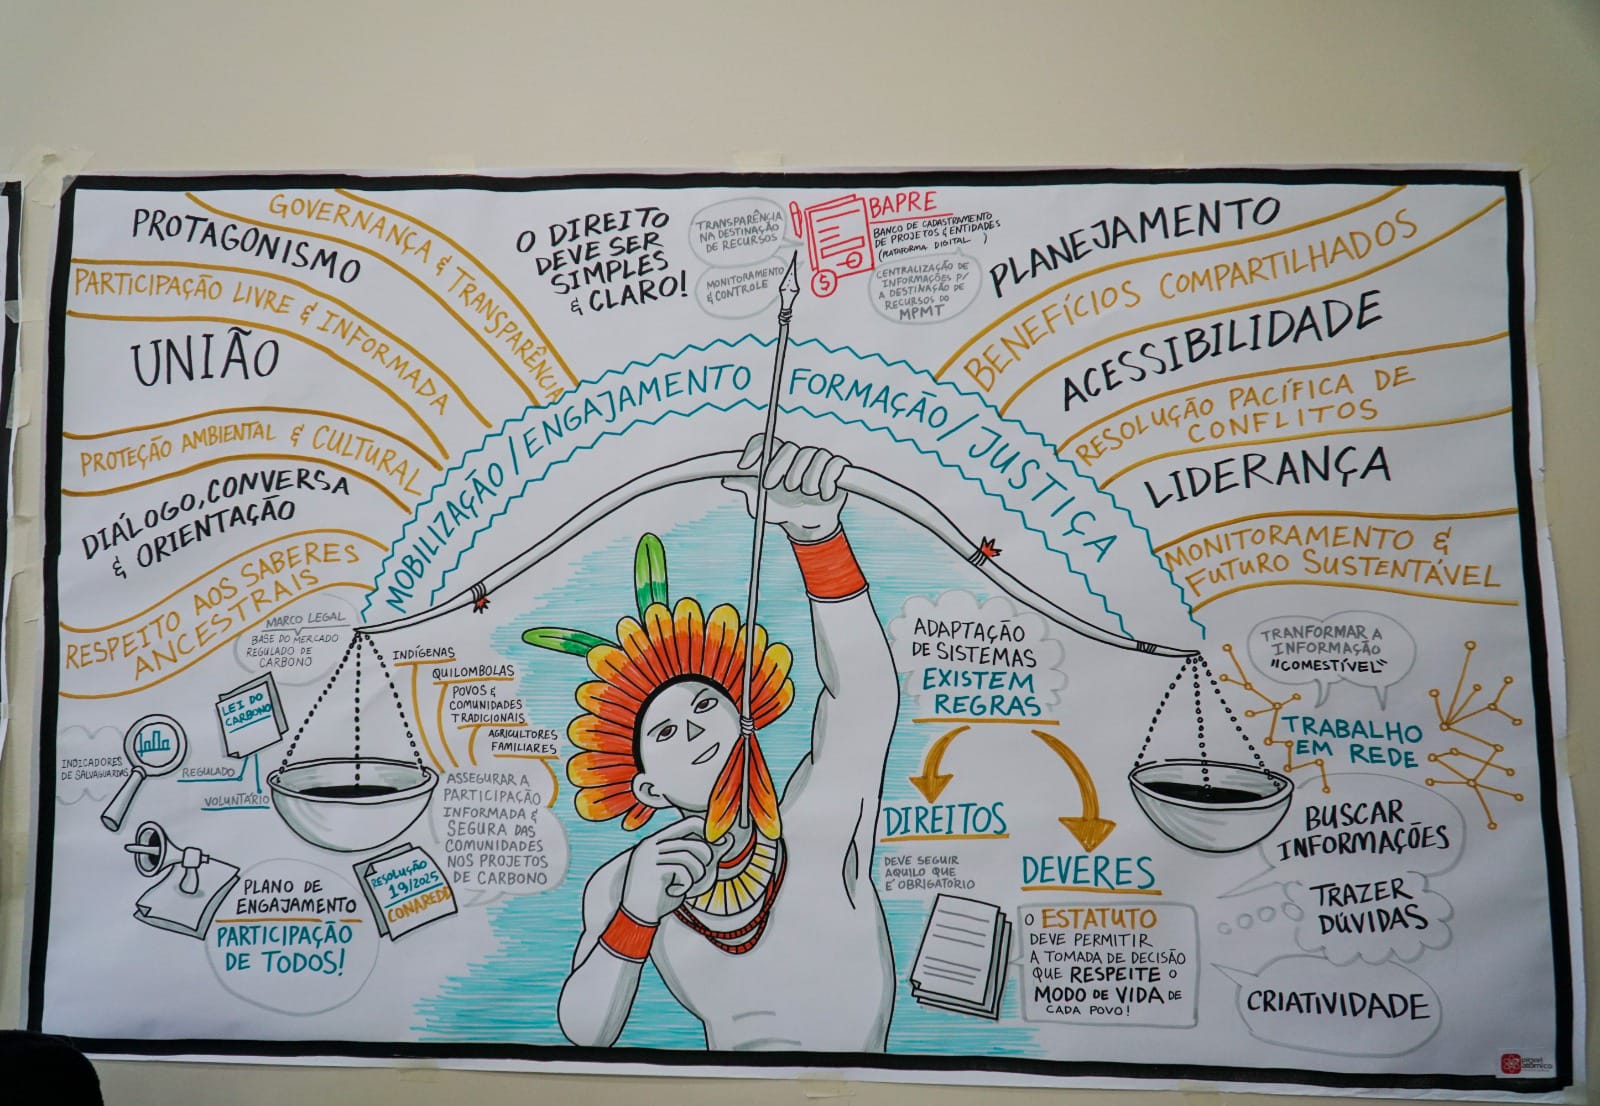 GOVERNANÇA & TRANSPARÊNCIA
PROTAGONISMO
PARTICIPAÇÃO LIVRE & INFORMADA
UNIÃO
PROTEÇÃO AMBIENTAL & CULTURAL
DIÁLOGO, CONVERSA
& ORIENTAÇÃO
RESPEITO AOS SABERES
ANCESTRAIS
O DIREITO
DEVE SER
SIMPLES
& CLARO!
TRANSPARÊNCIA
NA DESTINAÇÃO
DE RECURSOS
MONITORAMENTO
& CONTROLE
BAPRE
BANCO DE CADASTRAMENTO
DE PROJETOS & ENTIDADES
(PLATAFORMA DIGITAL )
$
CENTRALIZAÇÃO DE
INFORMAÇÕES P/
A DESTINAÇÃO DE
RECURSOS DO
MPMT
PLANEJAMENTO
BENEFÍCIOS COMPARTILHADOS
ACESSIBILIDADE
RESOLUÇÃO PACÍFICA DE
CONFLITOS
LIDERANÇA
MONITORAMENTO &
FUTURO SUSTENTÁVEL
MOBILIZAÇÃO/ENGAJAMENTO FORMAÇÃO/JUSTIÇA
MARCO LEGAL
BASE DO MERCADO
REGULADO DE
CARBONO
LEI DO
CARBONO
REGULADO
VOLUNTÁRIO
INDICADORES
DE SALVAGUARDAS
INDÍGENAS
QUILOMBOLAS
POVOS &
COMUNIDADES
TRADICIONAIS
AGRICULTORES
FAMILIARES
ASSEGURAR A
PARTICIPAÇÃO
INFORMADA &
SEGURA DAS
COMUNIDADES
NOS PROJETOS
DE CARBONO
RESOLUÇÃO
19/2025
CONAREDD
PLANO DE
ENGAJAMENTO
PARTICIPAÇÃO
DE TODOS!
ADAPTAÇÃO
DE SISTEMAS
EXISTEM
REGRAS
DIREITOS
DEVE SEGUIR
AQUILO QUE
É OBRIGATÓRIO
DEVERES
O ESTATUTO
DEVE PERMITIR
A TOMADA DE DECISÃO
QUE RESPEITE O
MODO DE VIDA DE
CADA POVO!
TRANFORMAR A
INFORMAÇÃO
"COMESTÍVEL"
TRABALHO
EM REDE
BUSCAR
INFORMAÇÕES
TRAZER
DÚVIDAS
CRIATIVIDADE